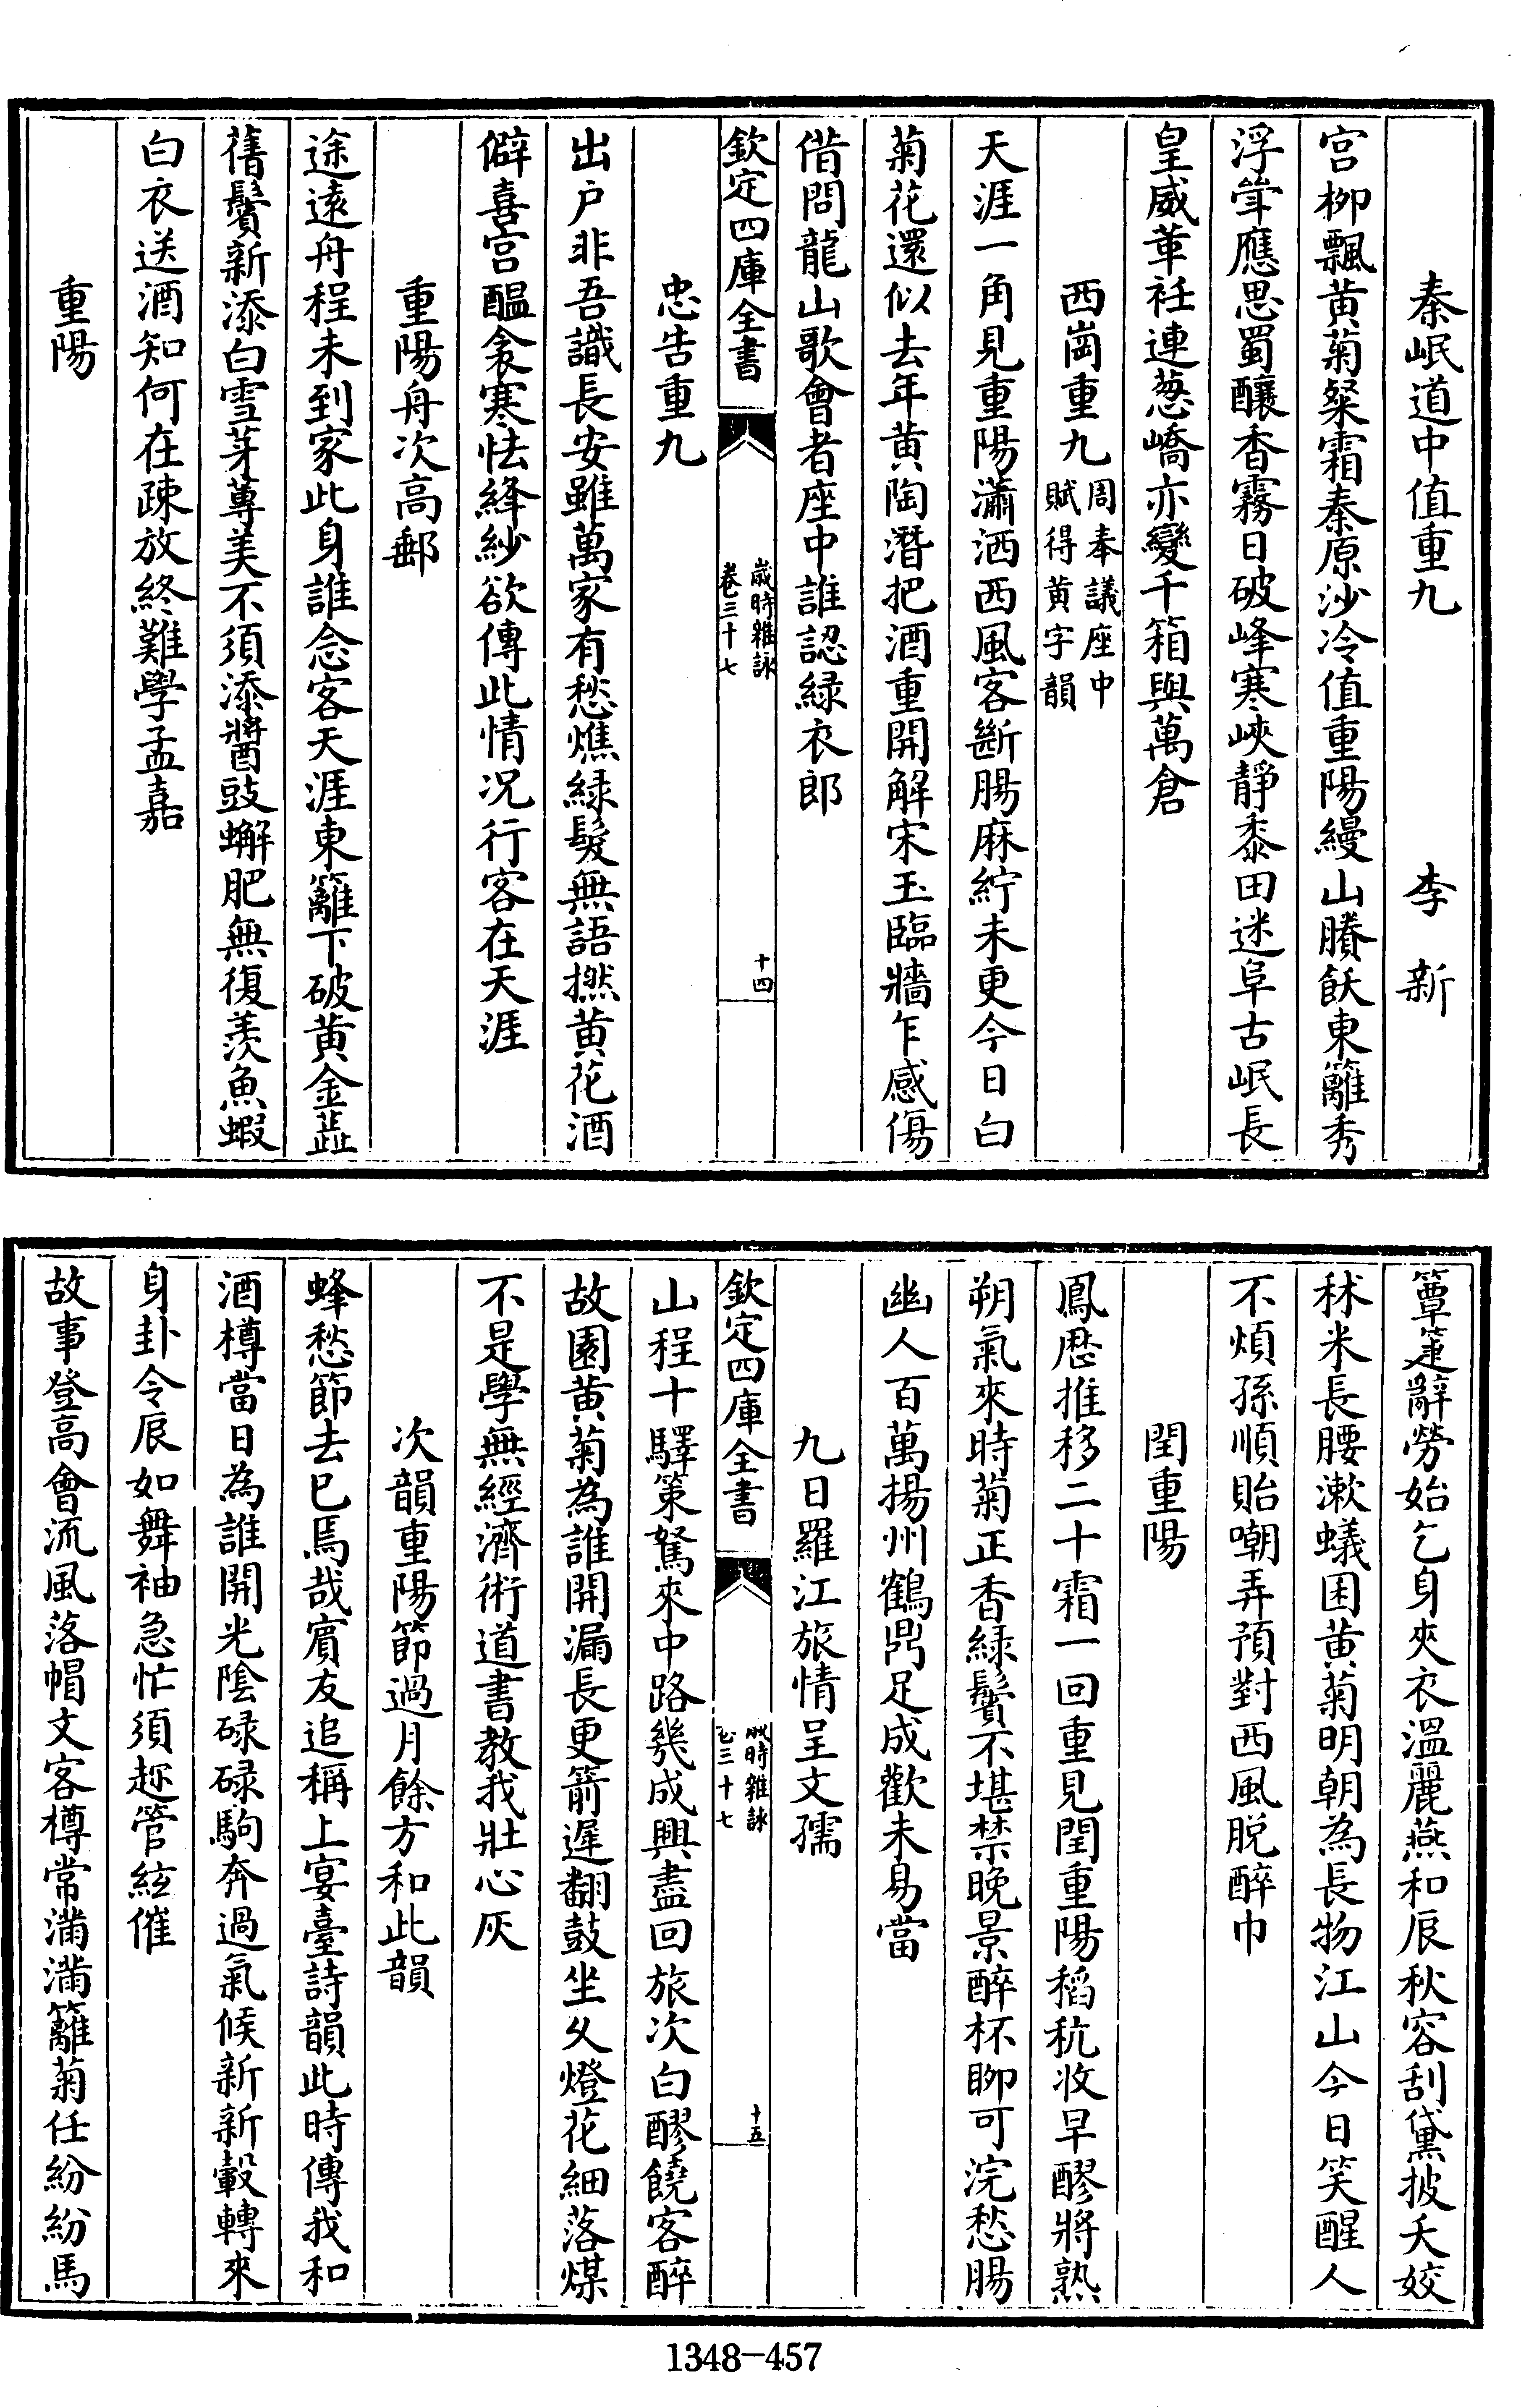 秦岷道中值重九　李新
宫柳飄黄菊粲霜秦原沙冷值重陽縵山賸飫東籬秀
浮觷應思蜀釀香霧日破峰寒峽靜黍田迷阜古岷長
皇威革衽連葱嶠亦變千箱與萬倉
西崗重九周奉議座中賦得黄字韻
天涯一角見重陽瀟洒西風客斷腸麻紵未更今日白
菊花還似去年黄陶潛把酒重開解宋玉臨牆乍感傷
借問龍山歌會者座中誰認緑衣郎
欽定四庫全書　歲時雜詠卷三十七　十四
忠告重九
出户非吾識長安雖萬家有愁燋緑髮無語撚黄花酒
僻喜宫醖衾寒怯絳紗欲傳此情况行客在天涯
重陽舟次高郵
途遠舟程未到家此身誰念客天涯東籬下破黄金蘂
舊鬢新添白雪芽蓴美不須添醬豉蠏肥無復羨魚蝦
白衣送酒知何在疎放終難學孟嘉
重陽
簟箑辭勞始乞身夾衣溫麗燕和辰秋容刮黛披夭姣
秫米長腰漱蟻困黄菊明朝為長物江山今日笑醒人
不煩孫順貽嘲弄預對西風脱醉巾
閏重陽
鳳厯推移二十霜一回重見閏重陽稻秔收早醪將熟
朔氣來時菊正香緑鬢不堪禁晩景醉杯聊可浣愁腸
幽人百萬揚州鶴鼎足成歡未易當
九日羅江旅情呈文孺
欽定四庫全書　歲時雜詠卷三十七　十五
山程十驛策駑來中路幾成興盡回旅次白醪饒客醉
故園黄菊為誰開漏長更箭遲翻鼓坐久燈花細落煤
不是學無經濟術道書教我壯心灰
次韻重陽節過月餘方和此韻
蜂愁節去已焉哉賓友追稱上宴臺詩韻此時傳我和
酒樽當日為誰開光陰碌碌駒奔過氣候新新轂轉來
身卦令辰如舞袖急忙須趂管絃催
故事登高會流風落帽文客樽常滿滿籬菊任紛紛馬
1348-457